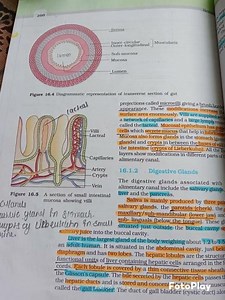 Serosa
Outer longitudinal
Inner circular
Muscularis
Sub-mucosa
Mucosa
Lumen
Figure 16.4 Diagrammatic representation of transverse section of gut
projections called
appearance. These modifications increase the
surface area enormously. Villi are supplied with
a network of capillaries and a large lymph vessel
called the lacteal. Mucosal epithelium has goblet
cells which secrete mucus that help in lubrication.
Mucosa also forms glands in the stomach (gastric
glands) and crypts in between the bases of villi in
the intestine (crypts of Lieberkuhn). All the four
layers show modifications in different parts of the
alimentary canal.
lacteal
Villi
Lacteal
Capillaries
Artery
Crypts
Vein
Figure 16.5 A section of small intestinal
mucosa showing villi
16.1.2 Digestive Glands
The digestive glands associated with the
alimentary canal include the salivary glands, the
liver and the pancreas.
Saliva is mainly produced by three pairs of
salivary glands, the parotids (cheek), the sub-
maxillary/sub-mandibular (lower jaw) and the
sub-linguals (below the tongue). These glands
situated just outside the buccal cavity secrete
salivary juice into the buccal cavity.
Liver is the largest gland of the body weighing about 1.2 to 1.5 kg in
an adult human. It is situated in the abdominal cavity, just below the
diaphragm and has two lobes. The hepatic lobules are the structural and
functional units of liver containing hepatic cells arranged in the form of
cords. Each lobule is covered by a thin connective tissue sheath called
the Glisson's capsule. The bile secreted by the hepatic cells passes through
the hepatic ducts and is stored and concentrated in a thin muscular sac
called the gall bladder. The duct of gall bladder (cystic duct) along
glands
gland in stomach
FotoPlay